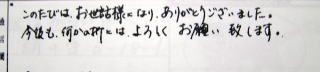 このたびは、お世話様になり、ありがとうございました。
今後も、何かの折には、よろしくお願い致します。